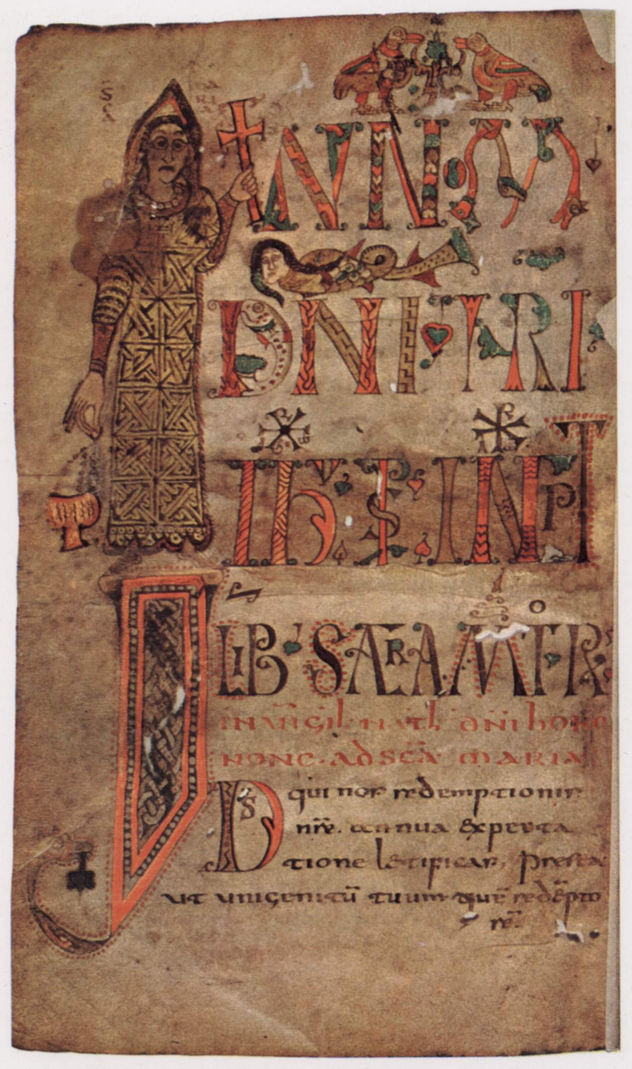 SCA MARIA
IN NOM
DNI NRI
IHU XPI INPT
LIB SACRAMTOR
IN UIGIL NATL DNI HORA
NONA AD SCA MARIA
DS qui nos redemptionis
nrē annua expecta
tione letificas, presta
ut unigenitū tuum quē redēpto
rē